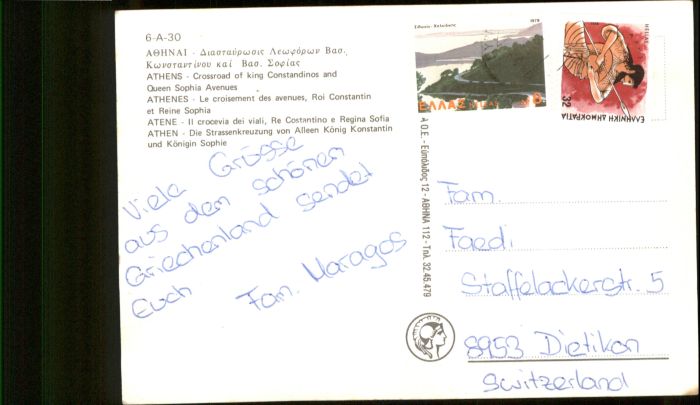 6-A-30
ΑΘΗΝΑΙ - Διασταύρωσις Λεωφόρων Βασ.
Κωνσταντίνου καί Βασ. Σοφίας
ATHENS - Crossroad of king Constandinos and
Queen Sophia Avenues
ATHENES - Le croisement des avenues, Roi Constantin
et Reine Sophia
ATENE - Il crocevia dei viali, Re Costantino e Regina Sofia
ATHEN - Die Strassenkreuzung von Alleen König Konstantin
und Königin Sophie
Viele Grüsse
aus dem schönen
Griechenland sendet
Euch
Fam. Maragos
1979
ΕΛΛΑΣ
8
HELLAS
32
ΕΛΛΗΝΙΚΗ ΔΗΜΟΚΡΑΤΙΑ
Ο.Ε. - Εὐπόλιδος 12 - ΑΘΗΝΑ 112 - Τηλ. 32.45.479
Fam.
Faedi
Staffelackerstr. 5
8953 Dietikon
Switzerland